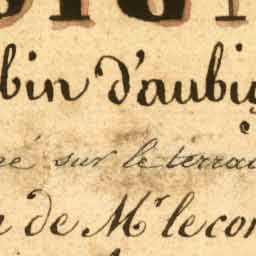 bin d'aubig
né sur le terrai
de Mr le con